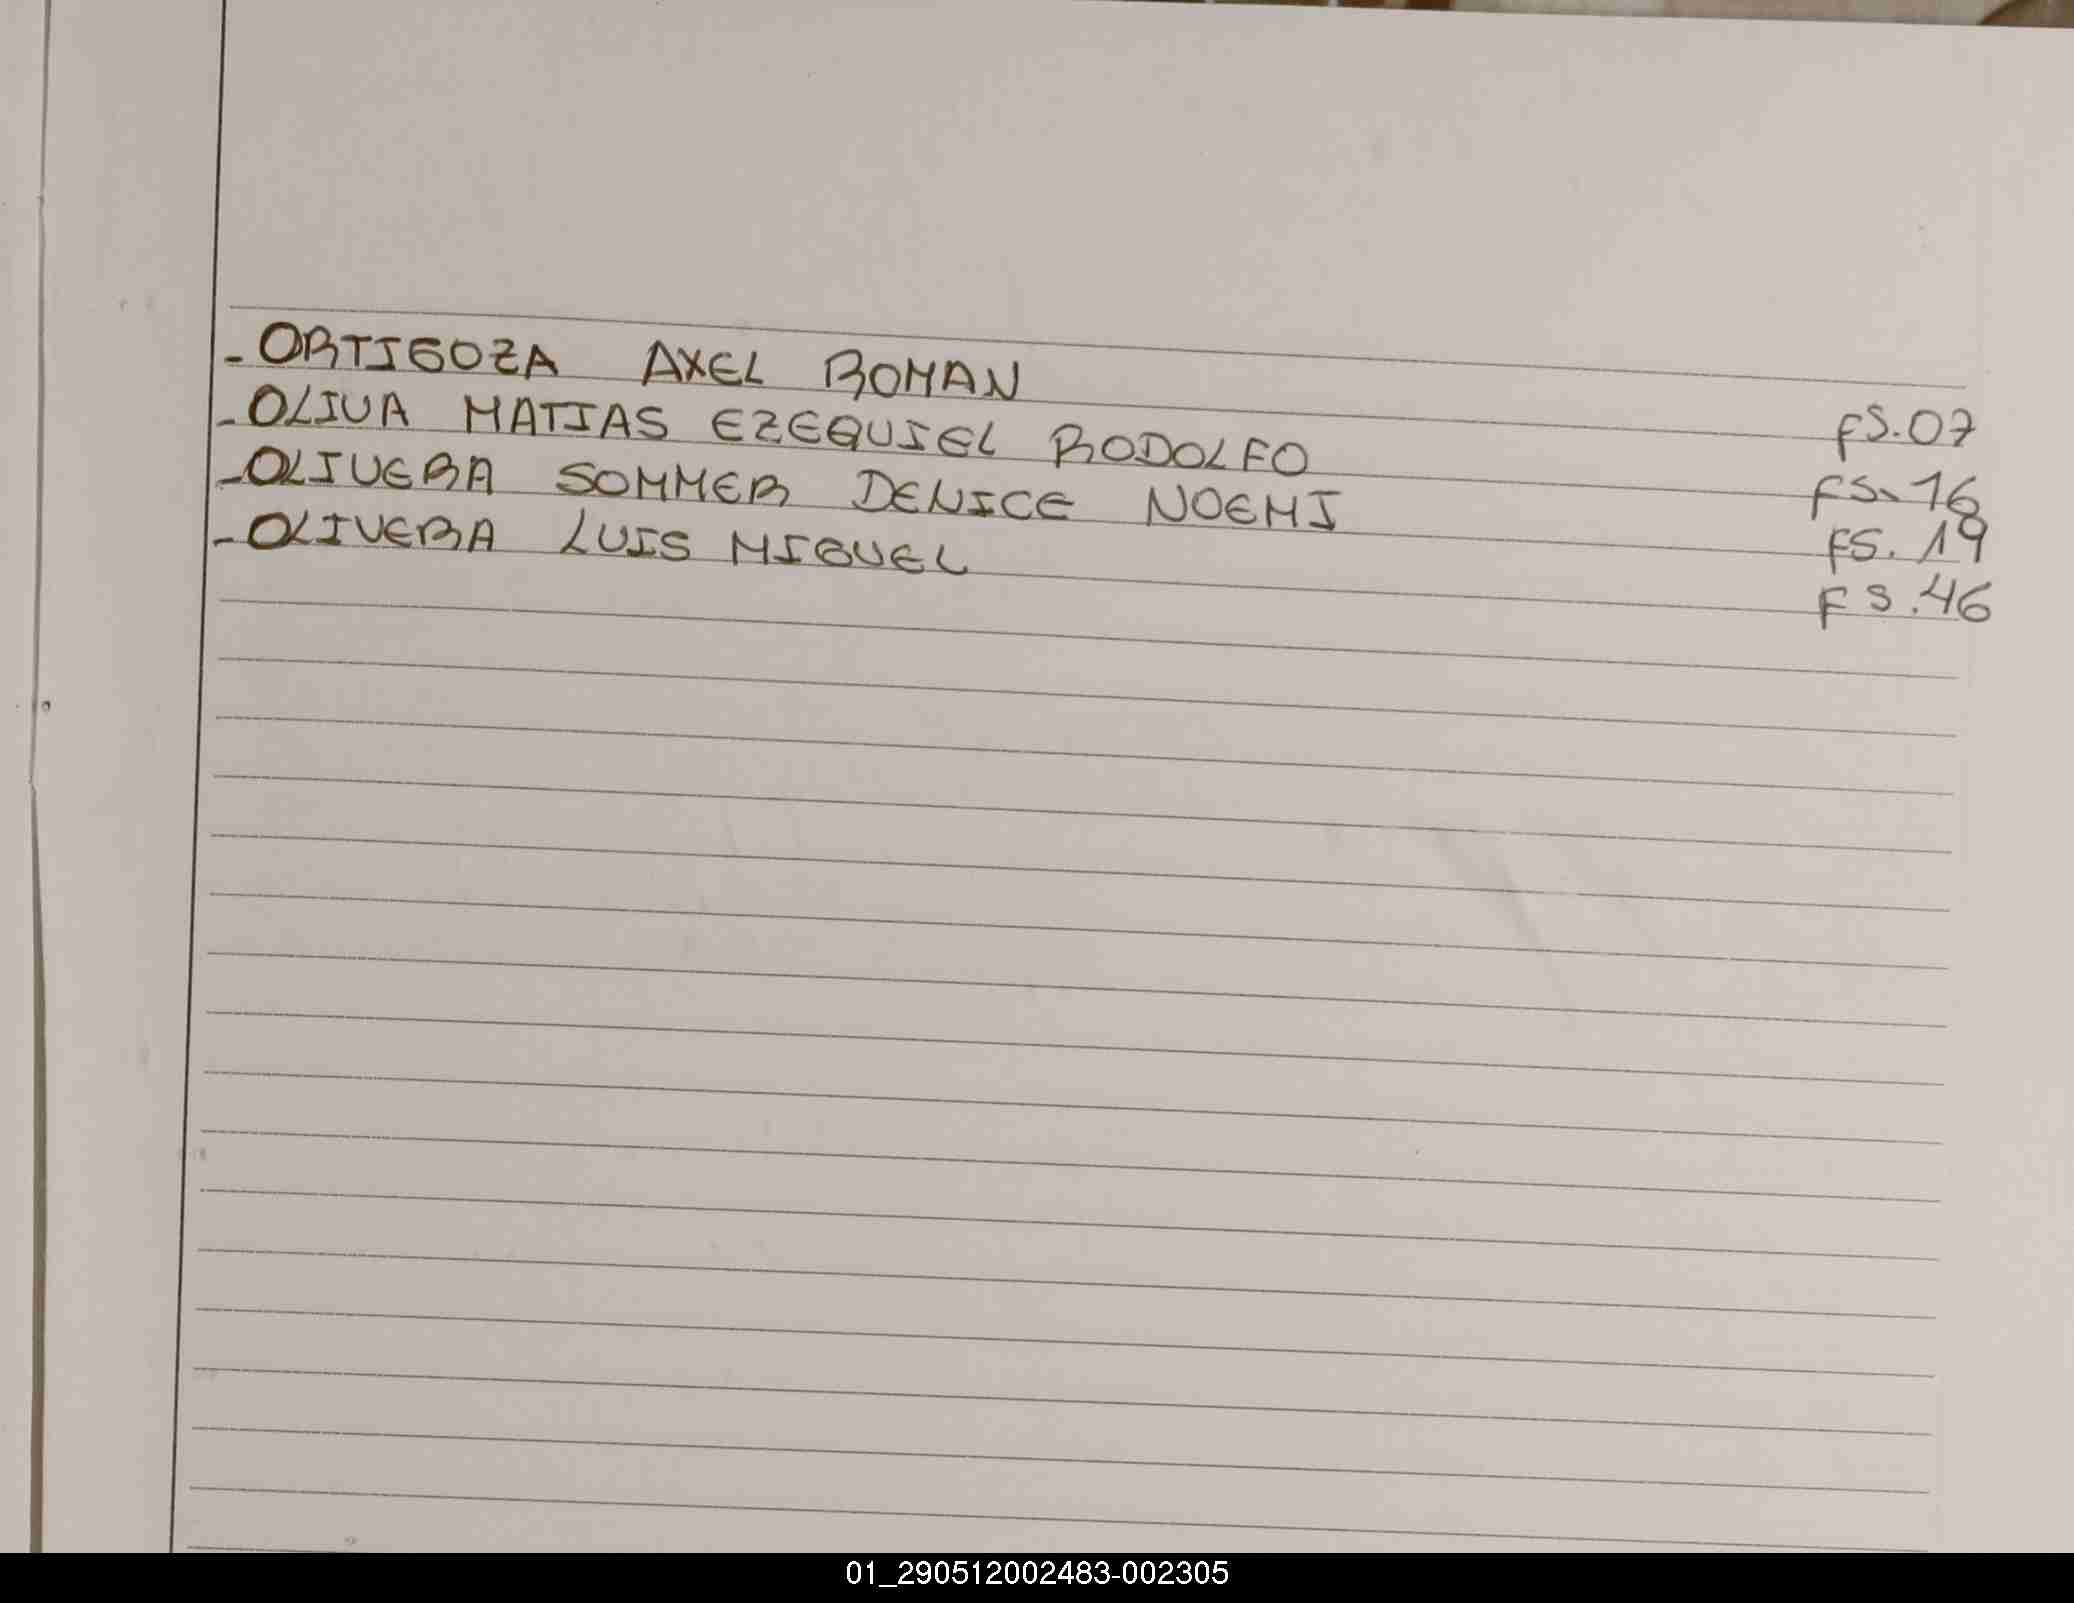 - ORTIGOZA AXEL ROMAN FS.07
- OLIVA MATIAS EZEQUIEL RODOLFO FS.16
- OLIVERA SOMMER DENICE NOEMI FS.19
- OLIVERA LUIS MIGUEL FS.46
01_290512002483-002305